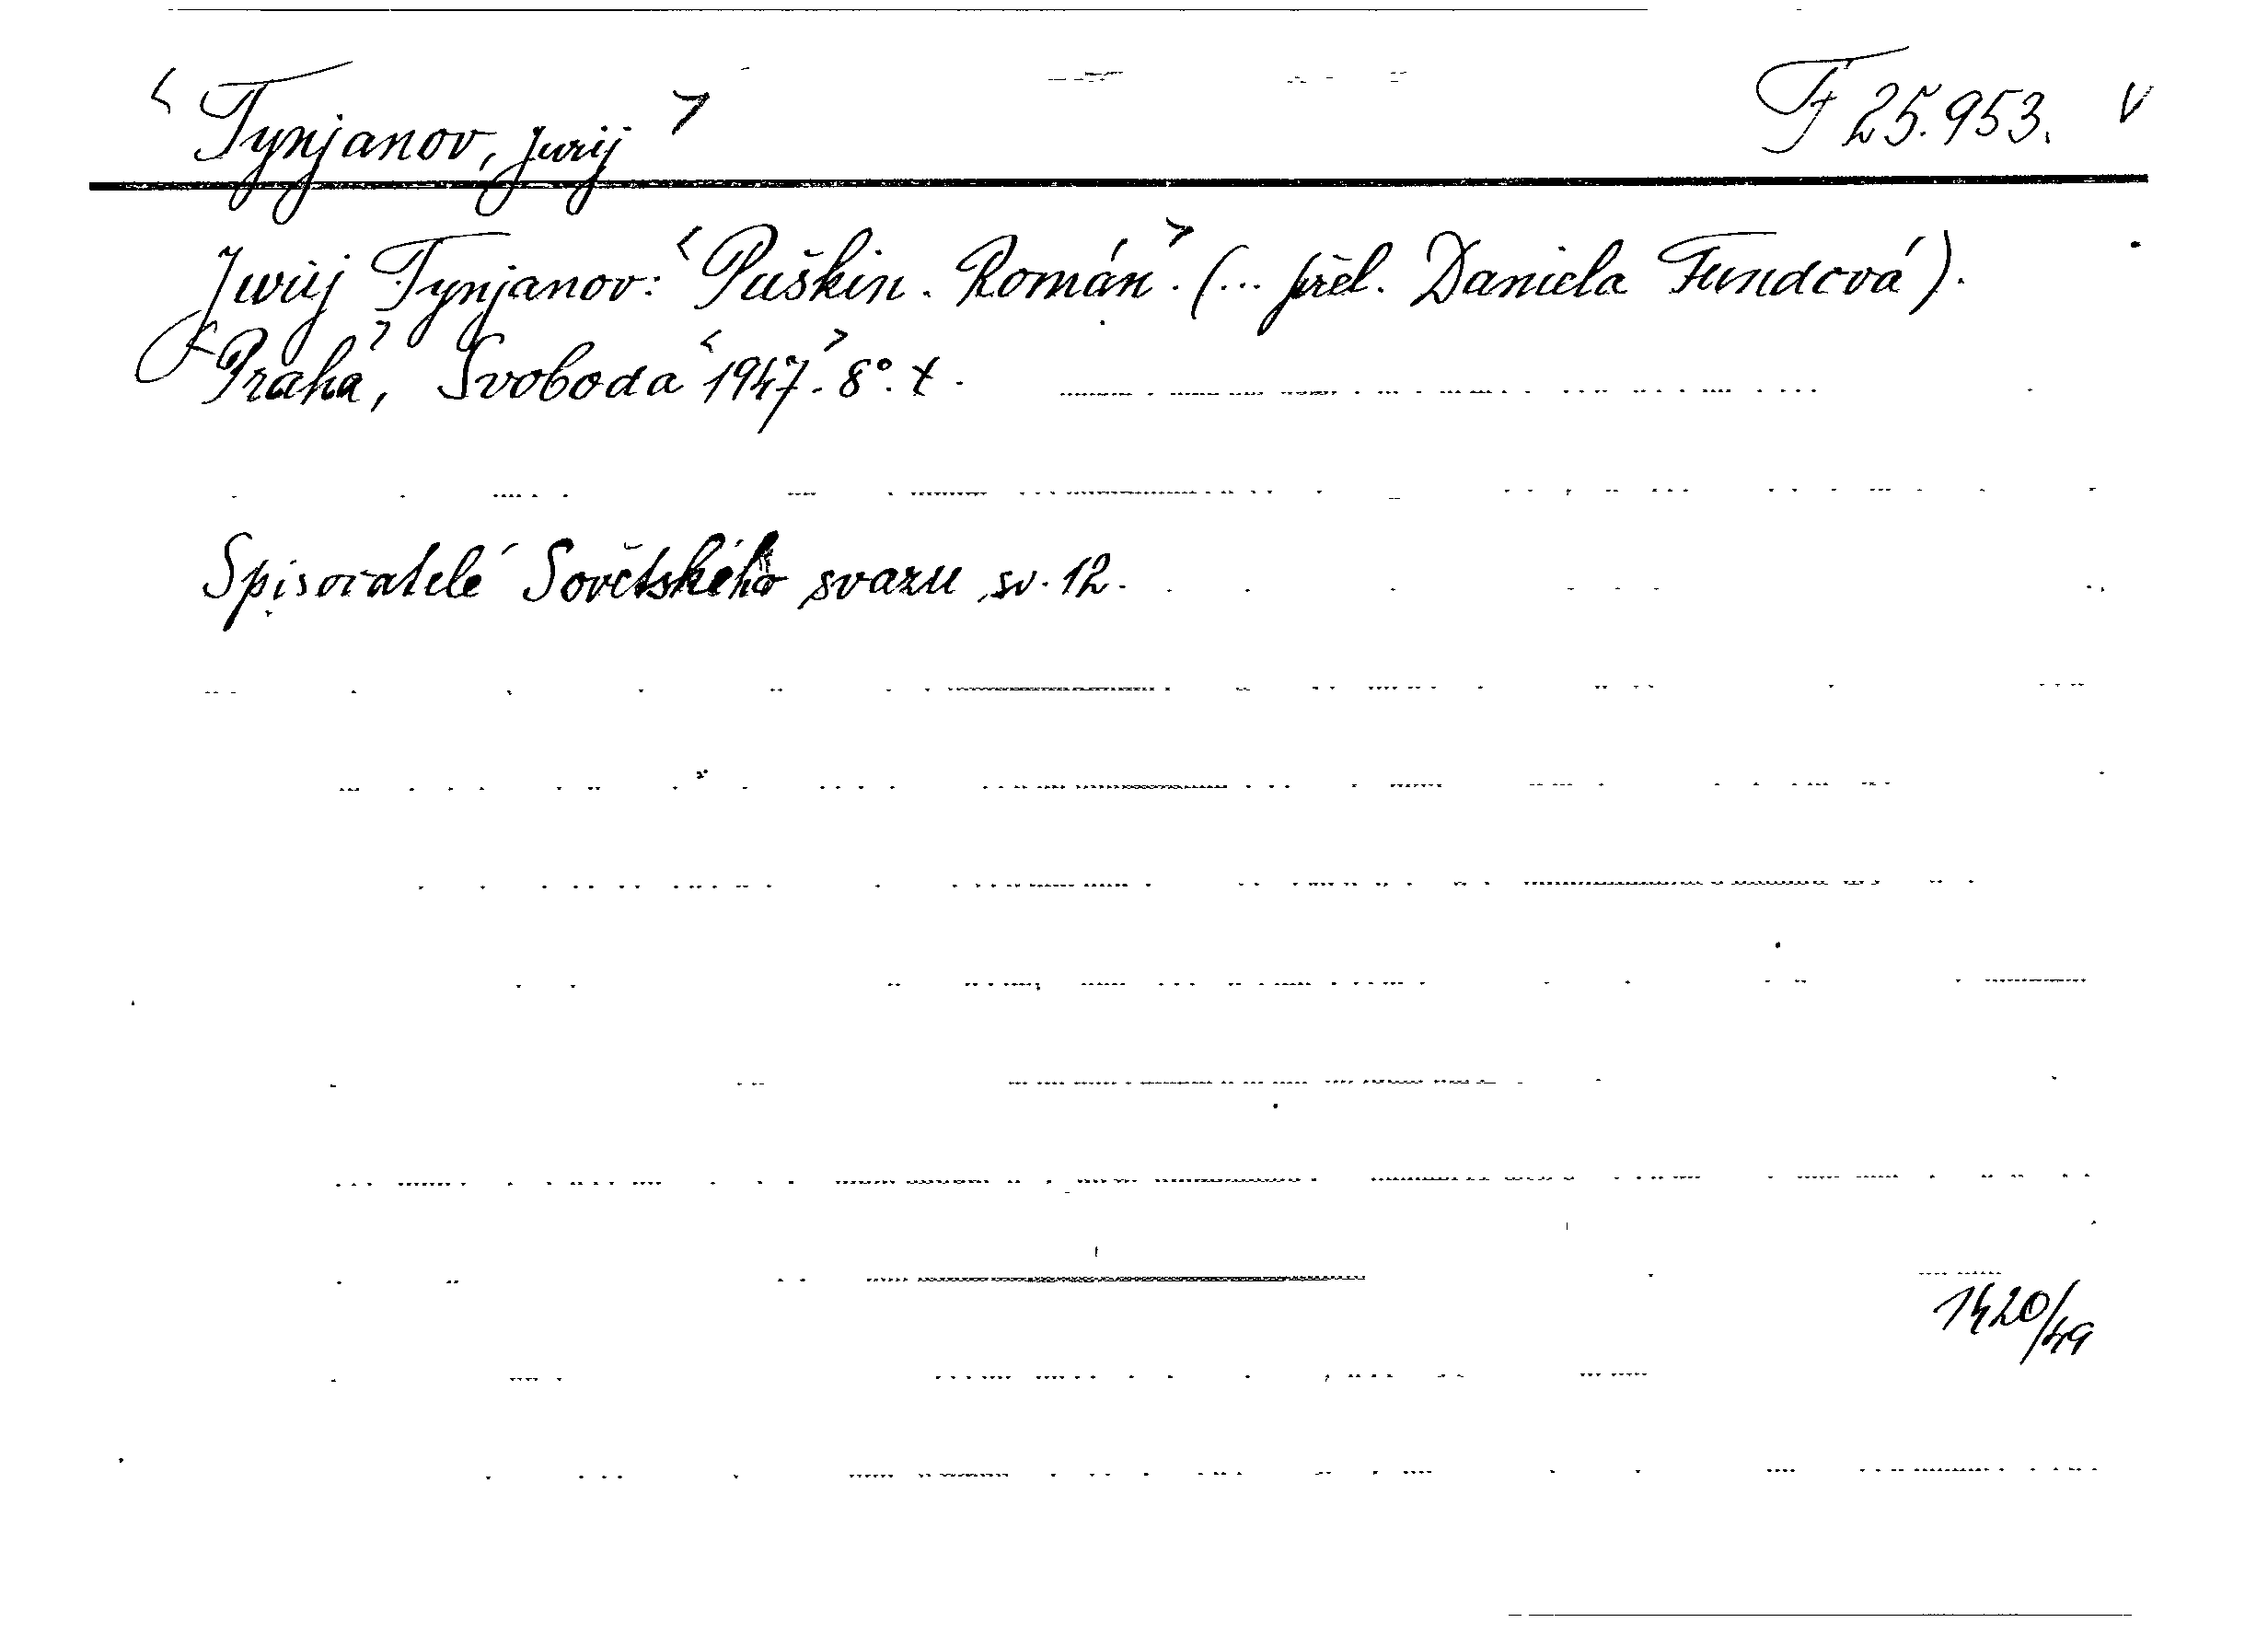 <Tynjanov, Jurij> F 25.953. v
Jurij Tynjanov: <Puškin. Román>. (... přel. Daniela Fundová).
<Praha>, Svoboda <1947>. 8°.
Spisovatelé Sovětského svazu, sv. 12.
1420/49